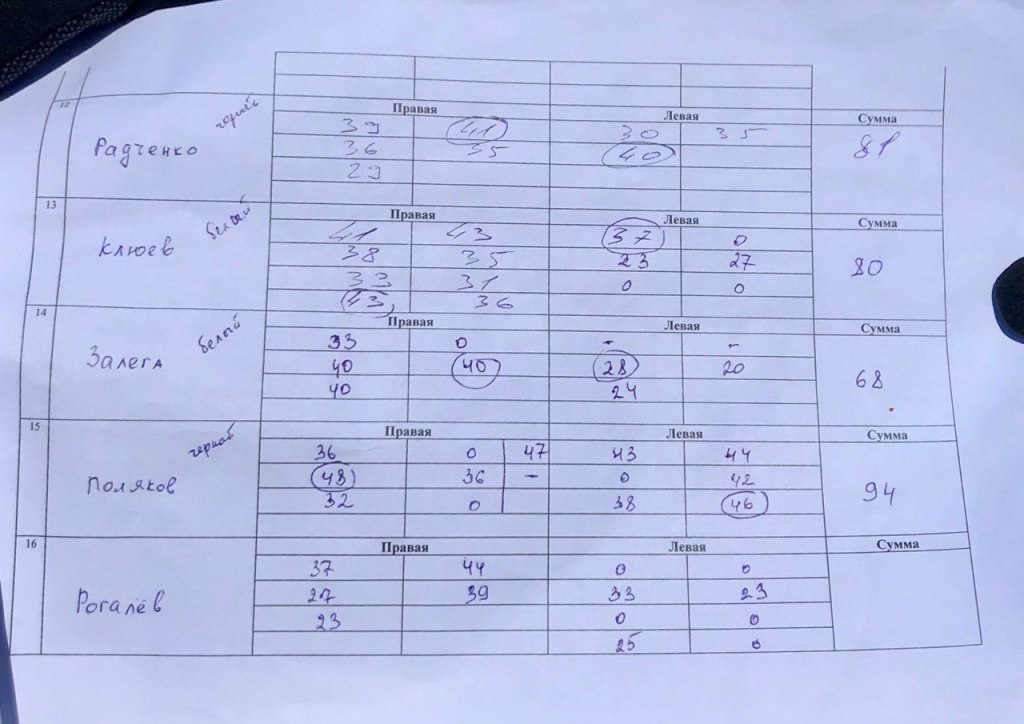 12 черный Правая Левая Сумма
Радченко 39 41 30 35 81
36 35 40
29
13 белый Правая Левая Сумма
Клюев 41 43 37 0 80
38 35 23 27
33 31 0 0
43 36
14 белый Правая Левая Сумма
Залега 33 0 - - 68
40 40 28 20
40 24
15 черный Правая Левая Сумма
Поляков 36 0 47 43 44 94
48 36 - 0 42
32 0 38 46
16 Правая Левая Сумма
Рогалёв 37 44 0 0
27 39 33 23
23 0 0
25 0